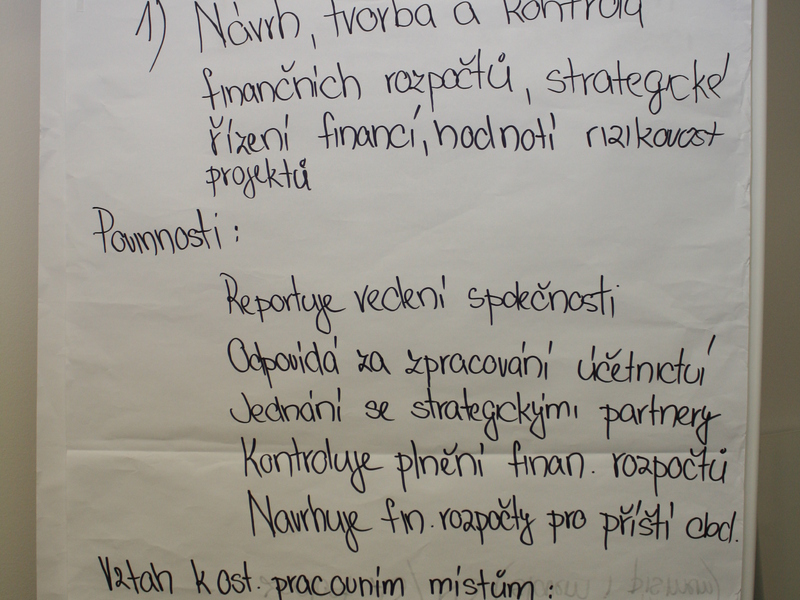 1) Návrh, tvorba a kontrola
finančních rozpočtů, strategické
řízení financí, hodnotí rizikovost
projektů
Povinnosti:
Reportuje vedení společnosti
Odpovídá za zpracování účetnictví
Jednání se strategickými partnery
Kontroluje plnění finan. rozpočtů
Navrhuje fin. rozpočty pro příští obd.
Vztah k ost. pracovním místům: